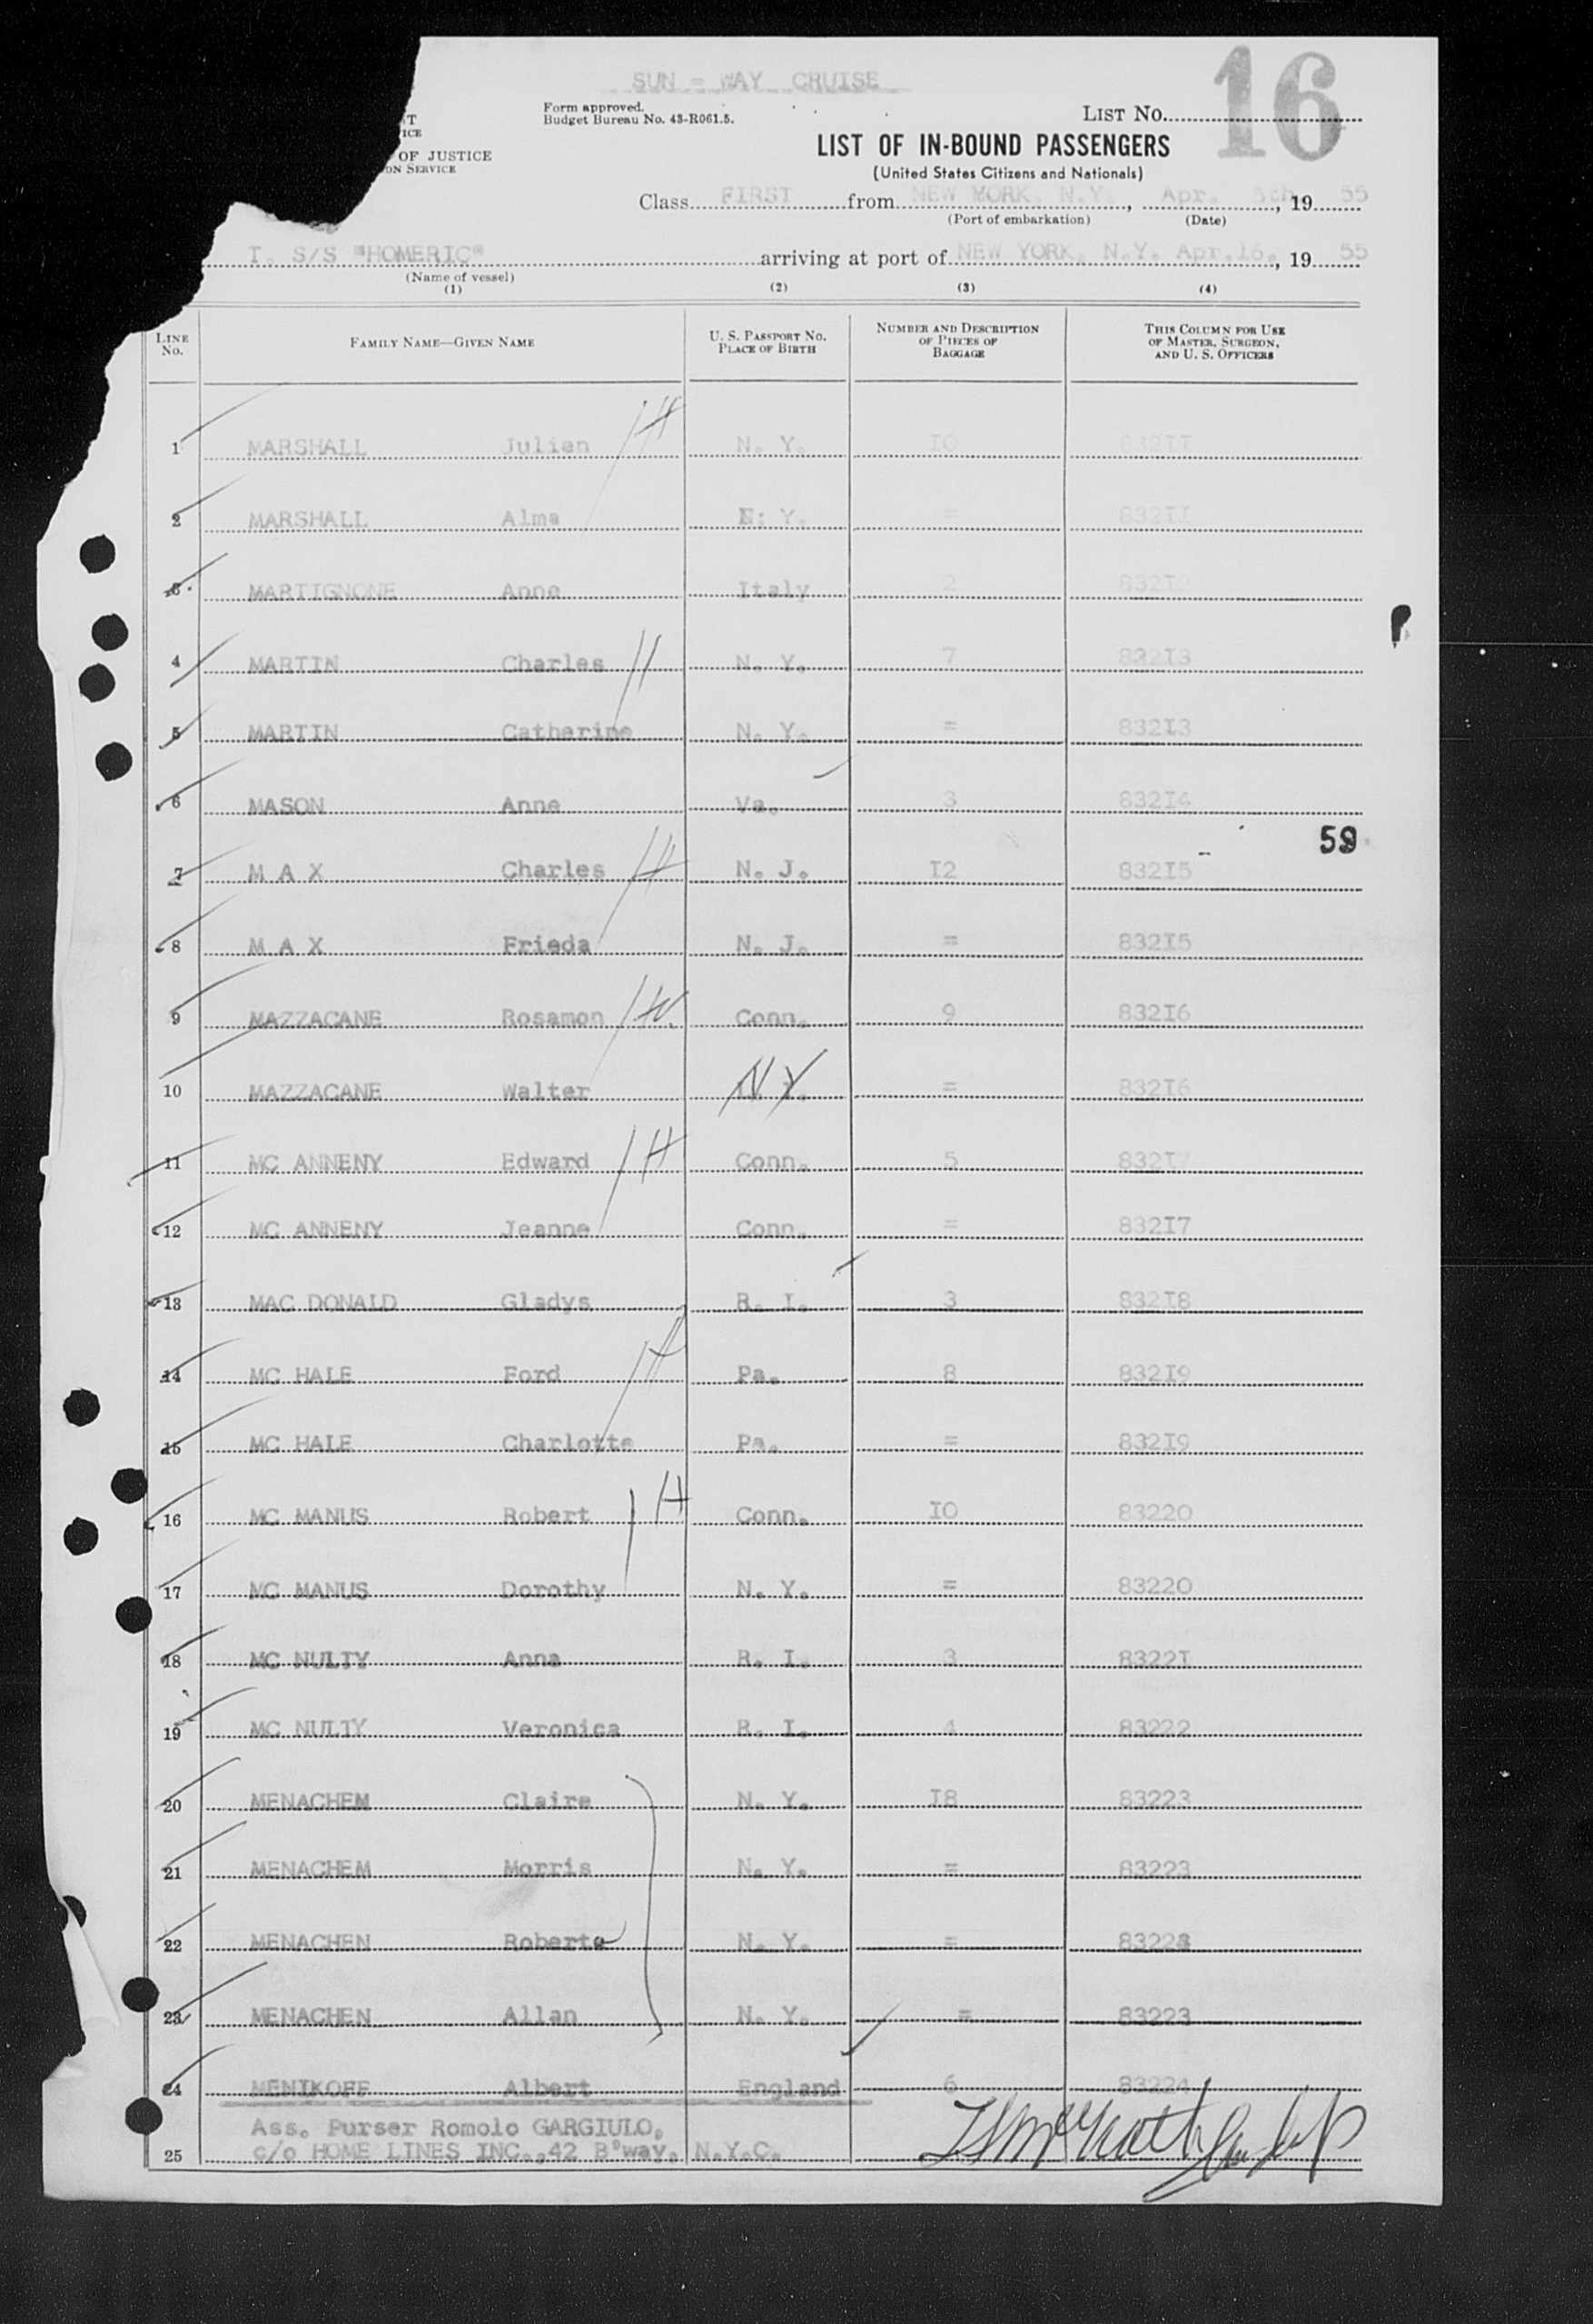 SUN = WAY CRUISE
16
Form approved.
Budget Bureau No. 43-R061.5.
LIST NO.
OF JUSTICE
ON SERVICE
LIST OF IN-BOUND PASSENGERS
(United States Citizens and Nationals)
Class FIRST from NEW YORK, N.Y., Apr. 19 55
(Port of embarkation) (Date)
I. S/S "HOMERIC" arriving at port of NEW YORK, N.Y. Apr.16, 19 55
(Name of vessel)
(1) (2) (3) (4)
LINE NO. FAMILY NAME—GIVEN NAME U. S. PASSPORT NO. PLACE OF BIRTH NUMBER AND DESCRIPTION OF PIECES OF BAGGAGE THIS COLUMN FOR USE OF MASTER, SURGEON, AND U. S. OFFICERS
1 MARSHALL Julien N. Y. IO 832II
2 MARSHALL Alma N. Y. = 832II
3 MARTIGNONE Anne Italy 2 832I2
4 MARTIN Charles N. Y. 7 832I3
5 MARTIN Catherine N. Y. = 832I3
6 MASON Anne Va. 3 832I4
59
7 M A X Charles N. J. I2 832I5
8 M A X Frieda N. J. = 832I5
9 MAZZACANE Rosamon Conn. 9 832I6
10 MAZZACANE Walter NY = 832I6
11 MC ANNENY Edward Conn. 5 832I7
12 MC ANNENY Jeanne Conn. = 832I7
13 MAC DONALD Gladys R. I. 3 832I8
14 MC HALE Ford Pa. 8 832I9
15 MC HALE Charlotte Pa. = 832I9
16 MC MANUS Robert Conn. IO 83220
17 MC MANUS Dorothy N. Y. = 83220
18 MC NULTY Anna R. I. 3 8322I
19 MC NULTY Veronica R. I. 4 83222
20 MENACHEM Claire N. Y. I8 83223
21 MENACHEM Morris N. Y. = 83223
22 MENACHEN Roberta N. Y. = 83223
23 MENACHEN Allan N. Y. = 83223
24 MENIKOFF Albert England 6 83224
Ass. Purser Romolo GARGIULO,
25 c/o HOME LINES INC.,42 B'way, N.Y.C.